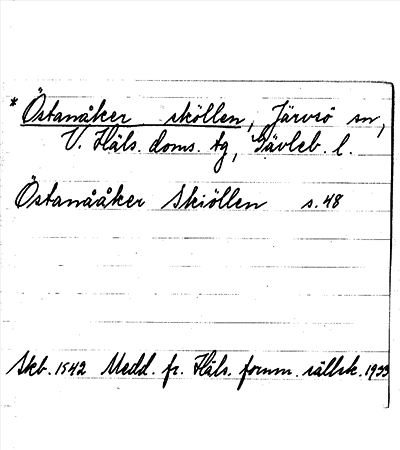 * Östanåker sköllen, Järvsö sn,
V. Häls. doms. tg, Gävleb. l.
Östanååker Skiöllen s. 48
Skb. 1542 Medd. fr. Häls. fornm. sällsk. 1933